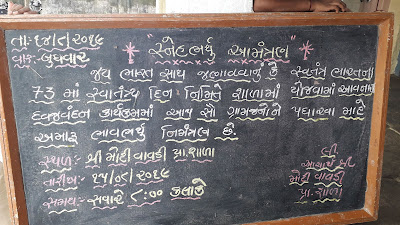 તા:-૧૪/૮/૨૦૧૯
વાર:- બુધવાર
"સ્નેહભર્યુ આમંત્રણ"
જય ભારત સાથ જણાવવાનું કે સ્વતંત્ર ભારતના
73 માં સ્વાતંત્ર્ય દિન નિમિત્તે શાળામાં યોજવામાં આવનાર
ધ્વજવંદન કાર્યક્રમમાં આપ સૌ ગ્રામજનોને પધારવા માટે
અમારૂ ભાવભર્યુ નિમંત્રણ છે.
સ્થળ:- શ્રી મોટી વાવડી પ્રા.શાળા
તારીખ:- ૧૫/૦૮/૨૦૧૯
સમય:- સવારે ૮:૦૦ કલાકે
લી
આચાર્ય શ્રી
મોટી વાવડી
પ્રા. શાળા